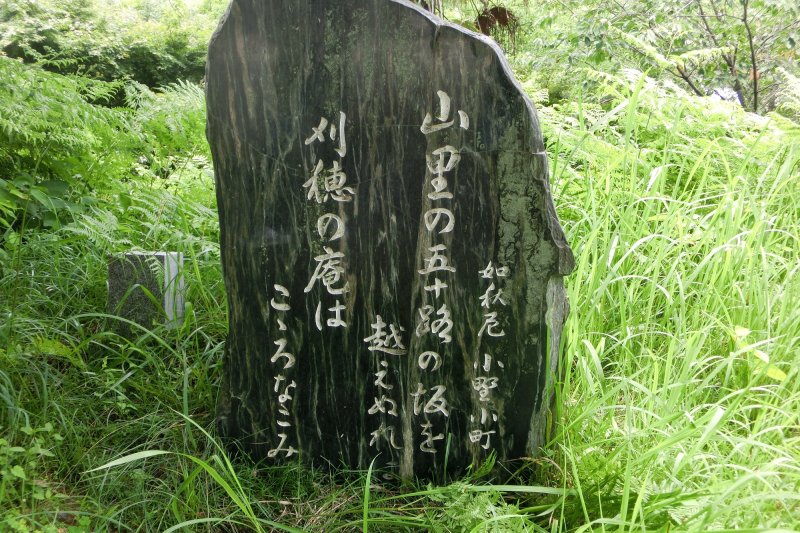 如秋尼 小野小町
山里の五十路の坂を
越えぬれ
刈穂の庵は
こゝろなこみ